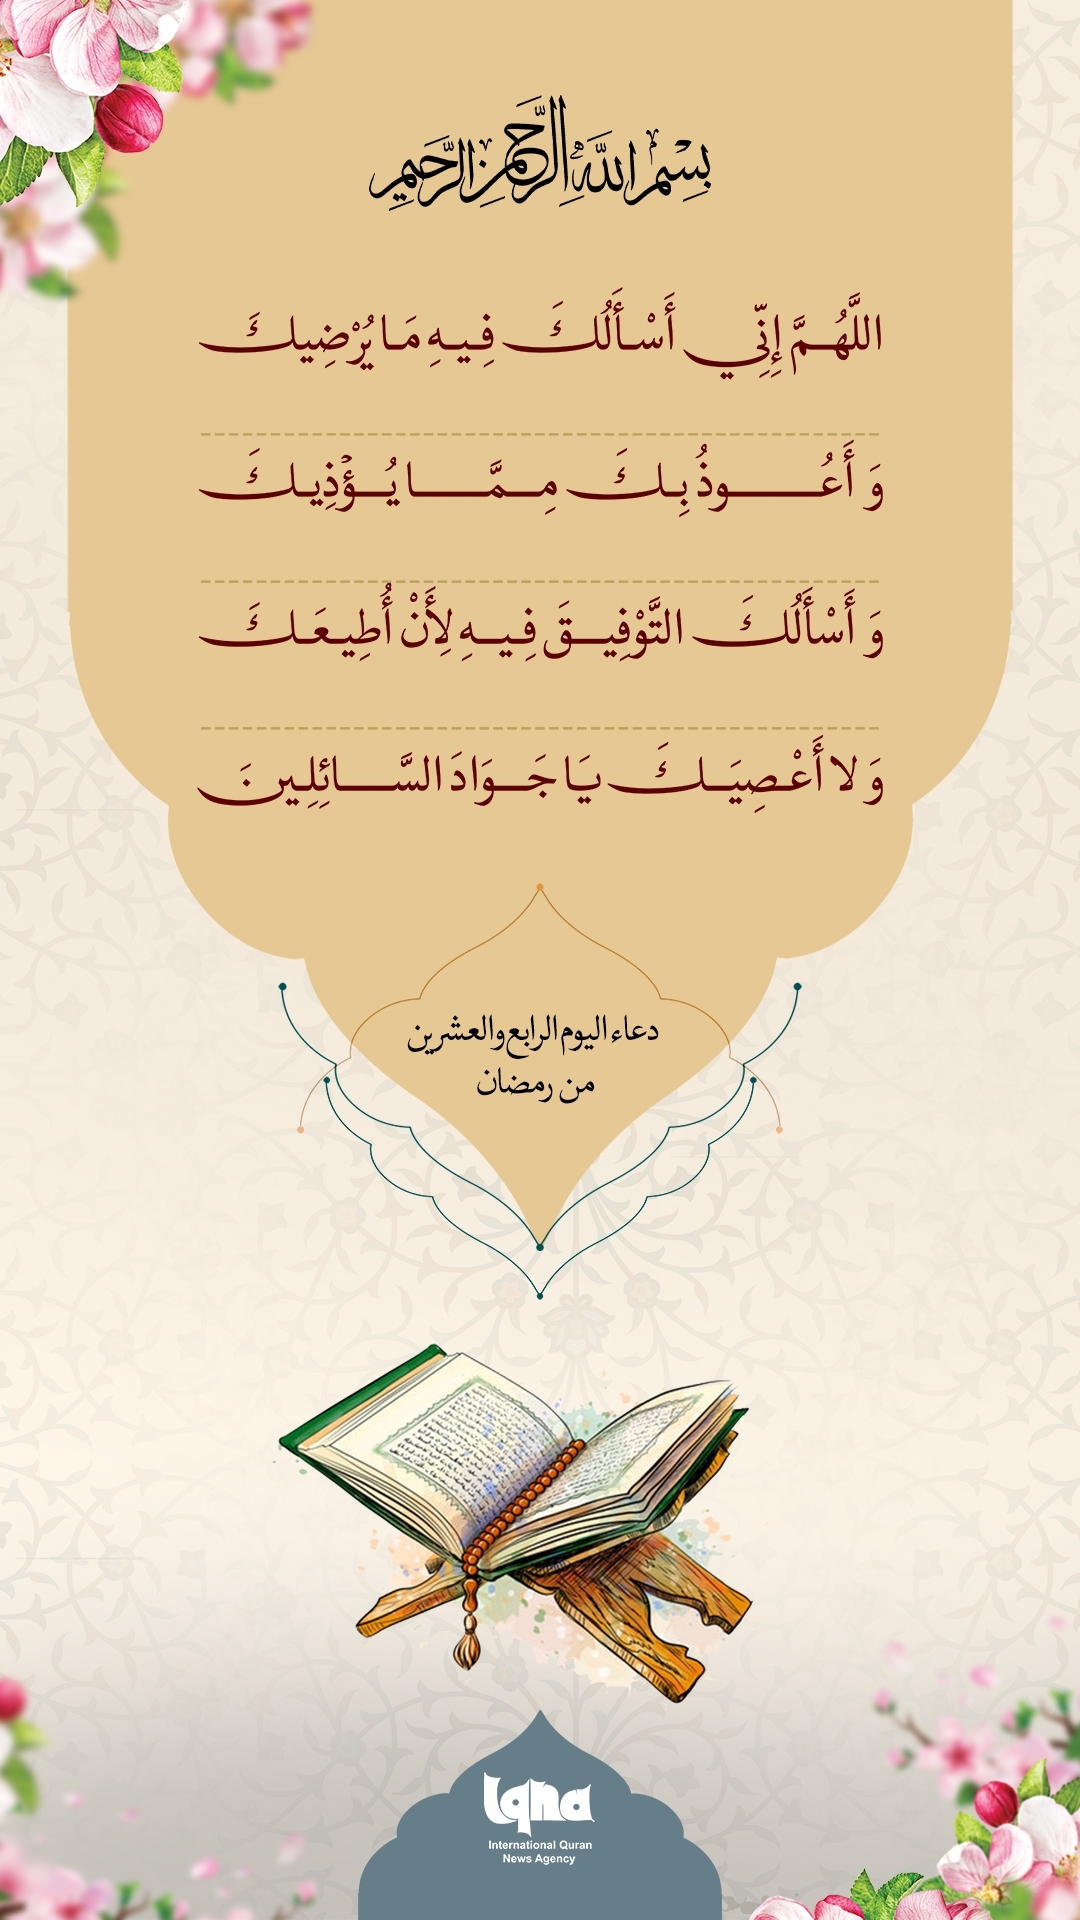 بِسْمِ اللَّهِ الرَّحْمٰنِ الرَّحِيمِ
اللَّهُمَّ إِنِّي أَسْأَلُكَ فِيهِ مَا يُرْضِيكَ
وَ أَعُوذُ بِكَ مِمَّا يُؤْذِيكَ
وَ أَسْأَلُكَ التَّوْفِيقَ فِيهِ لِأَنْ أُطِيعَكَ
وَ لا أَعْصِيَكَ يَا جَوَادَ السَّائِلِينَ
دعاء اليوم الرابع والعشرين
من رمضان
Iqna
International Quran
News Agency